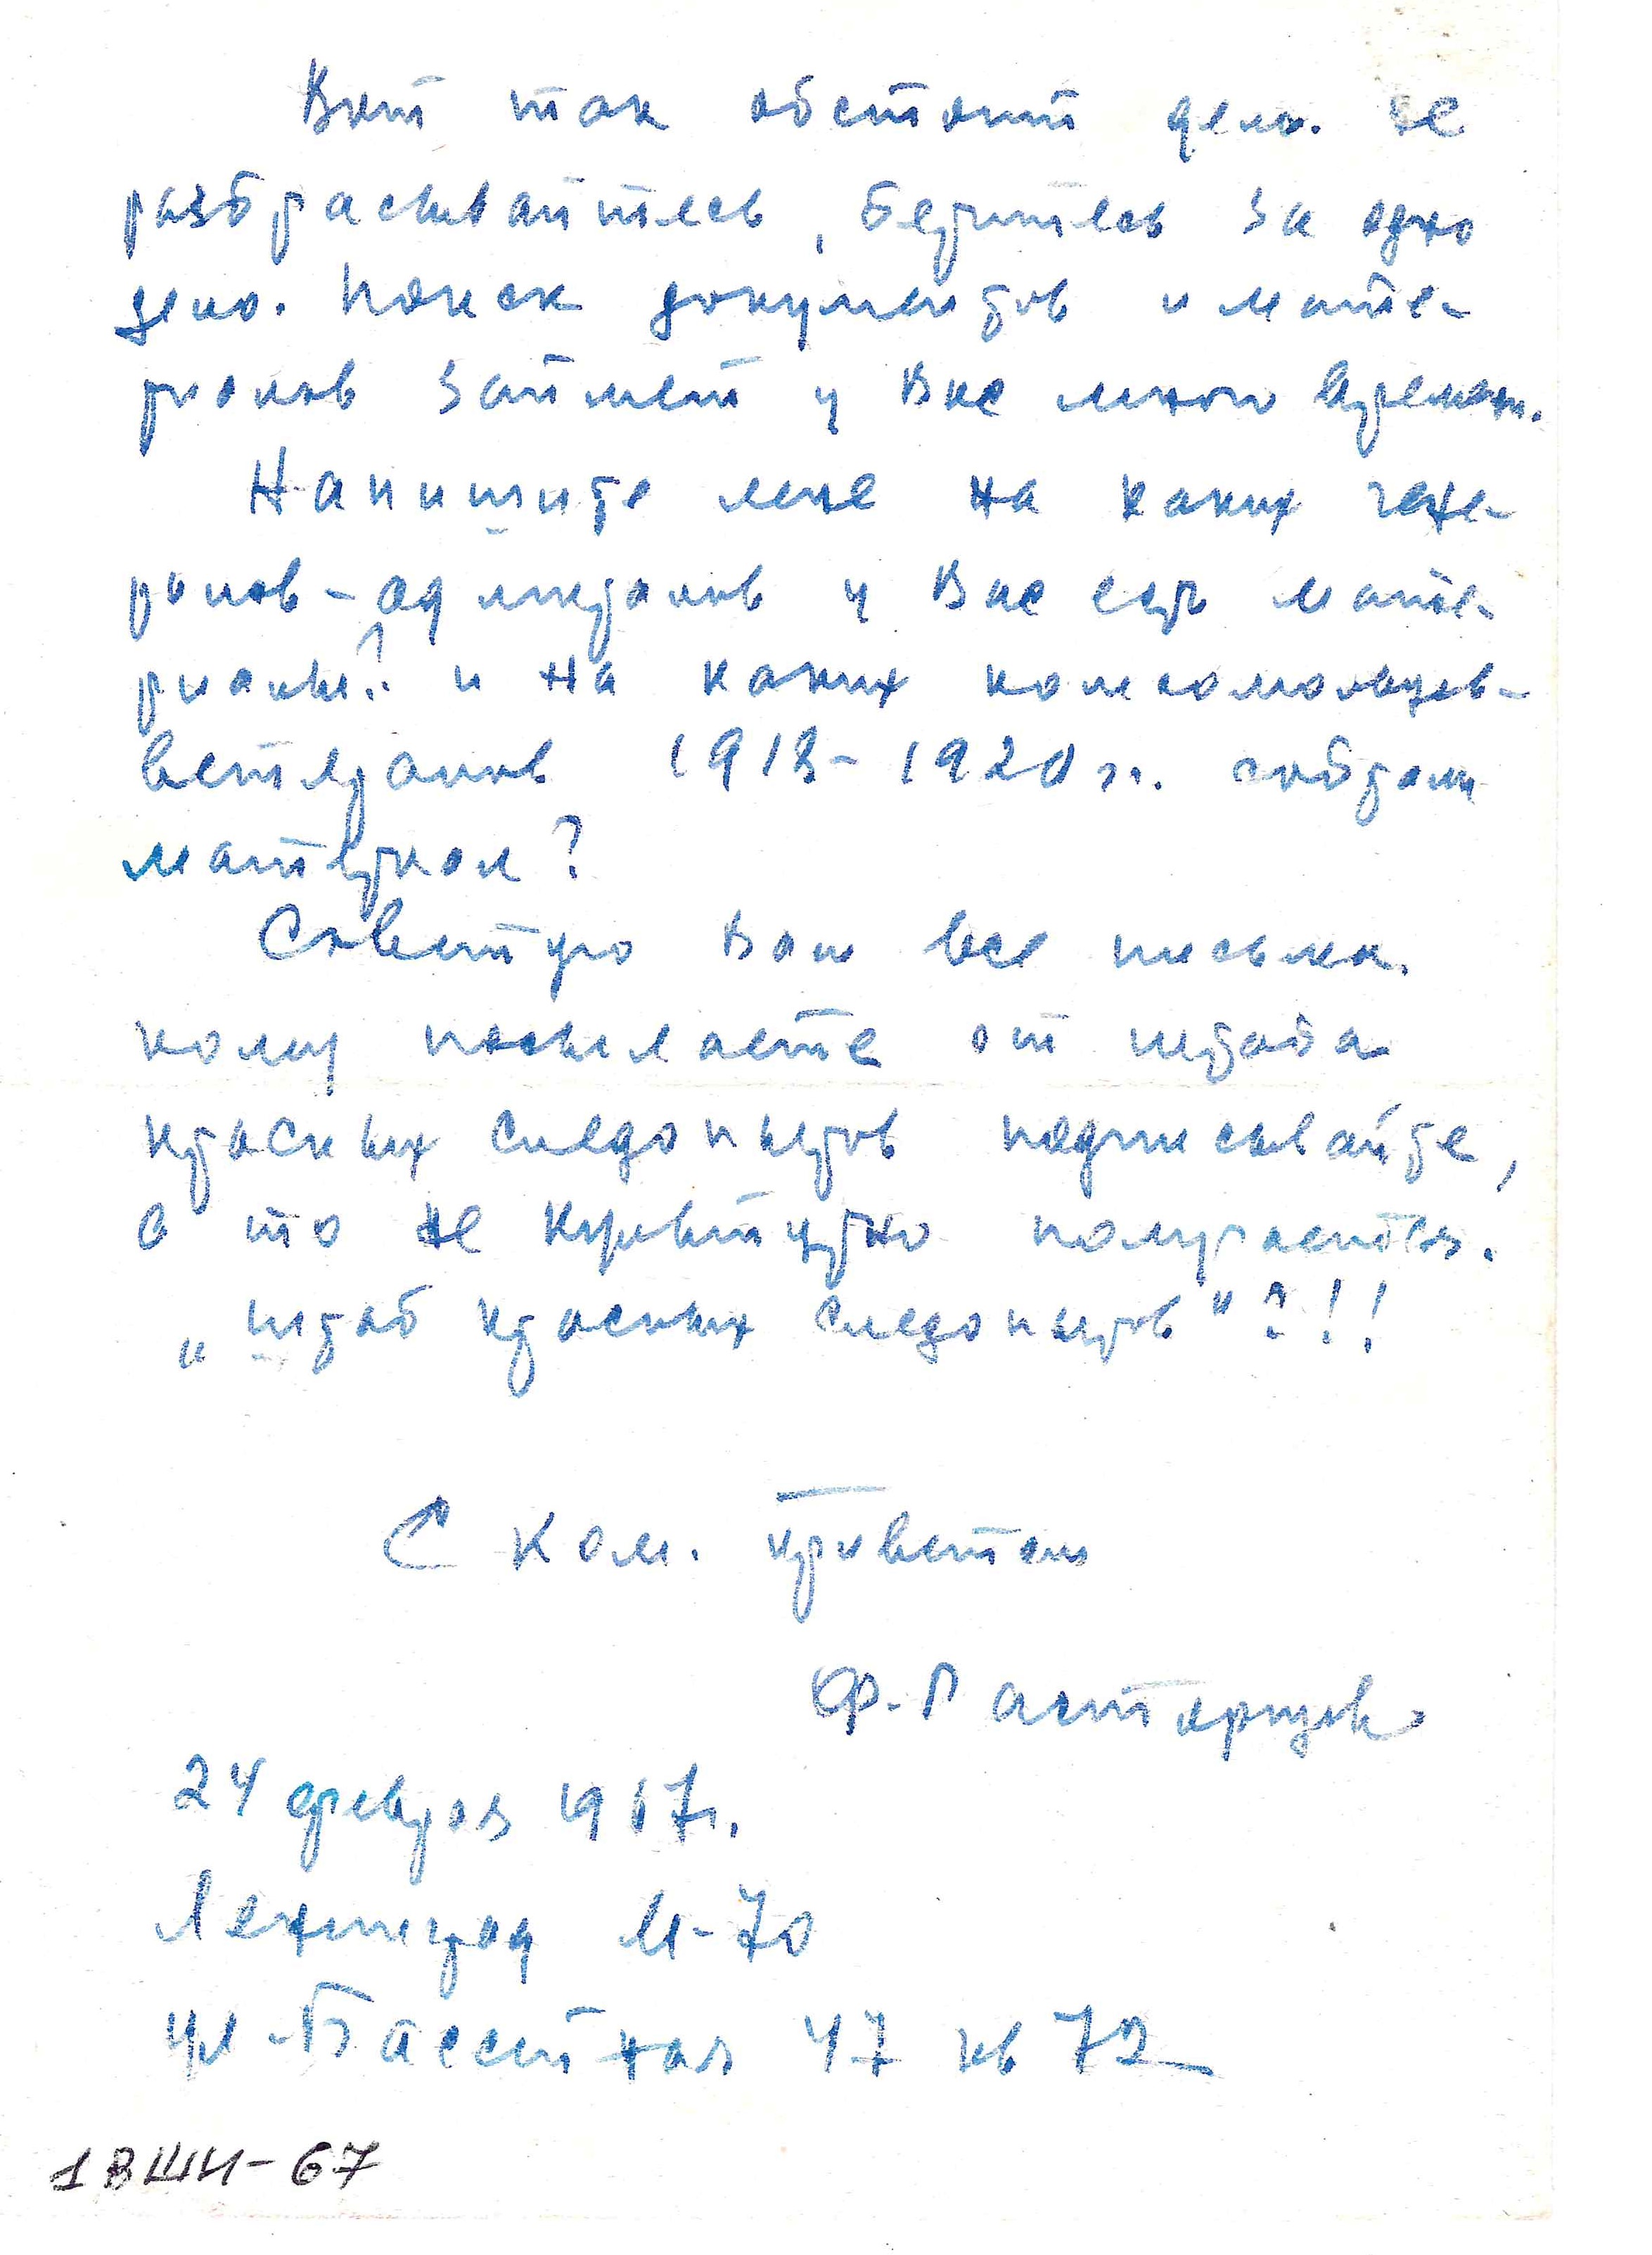 Вот так обстоит дело. Не
разбрасывайтесь, беритесь за одно
дело. Поиск документов и мате-
риалов займет у Вас много времени.
Напишите мне на каких гене-
ралов-адмиралов у Вас есть мате-
риалы? и на каких комсомольцев-
ветеранов 1918-1920 гг. собрали
материал?
Советую Вам все письма
кому посылаете от штаба
красных следопытов подписывайте,
а то не культурно получается.
„штаб красных следопытов"?!!
С ком. приветом
Ф. Расторгуев
24 февраля 1967г.
Ленинград М-70
ул. Бассейная 47 кв 72
1ВШИ-67